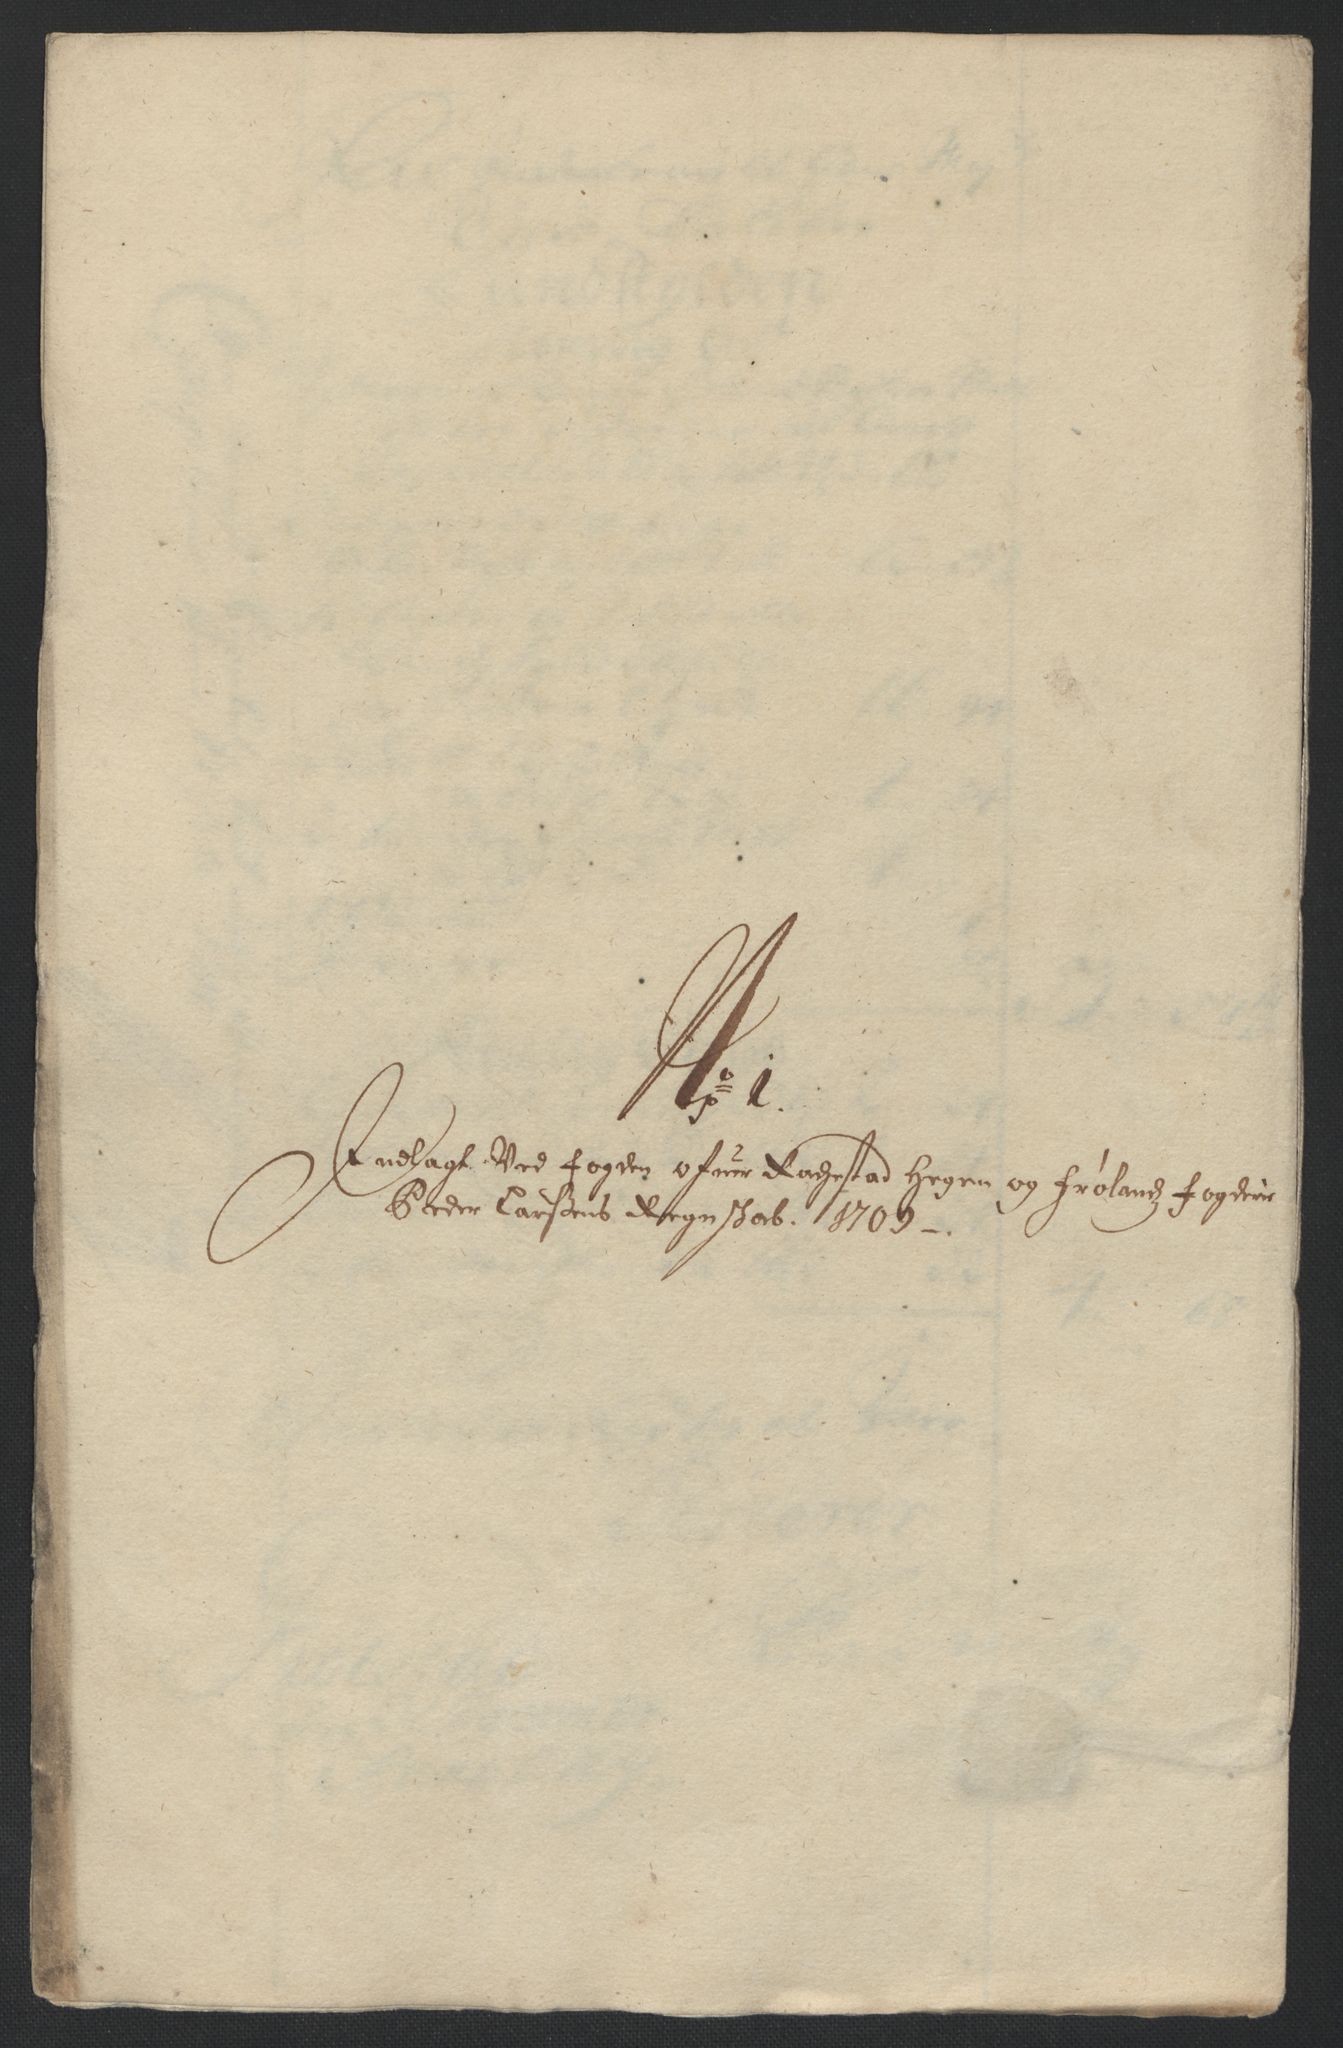 No 1.
Indlagt Ved fogden ofuer Rachestad Hegen og Frølandz fogderie
Peder Larsens Regnskab. 1709